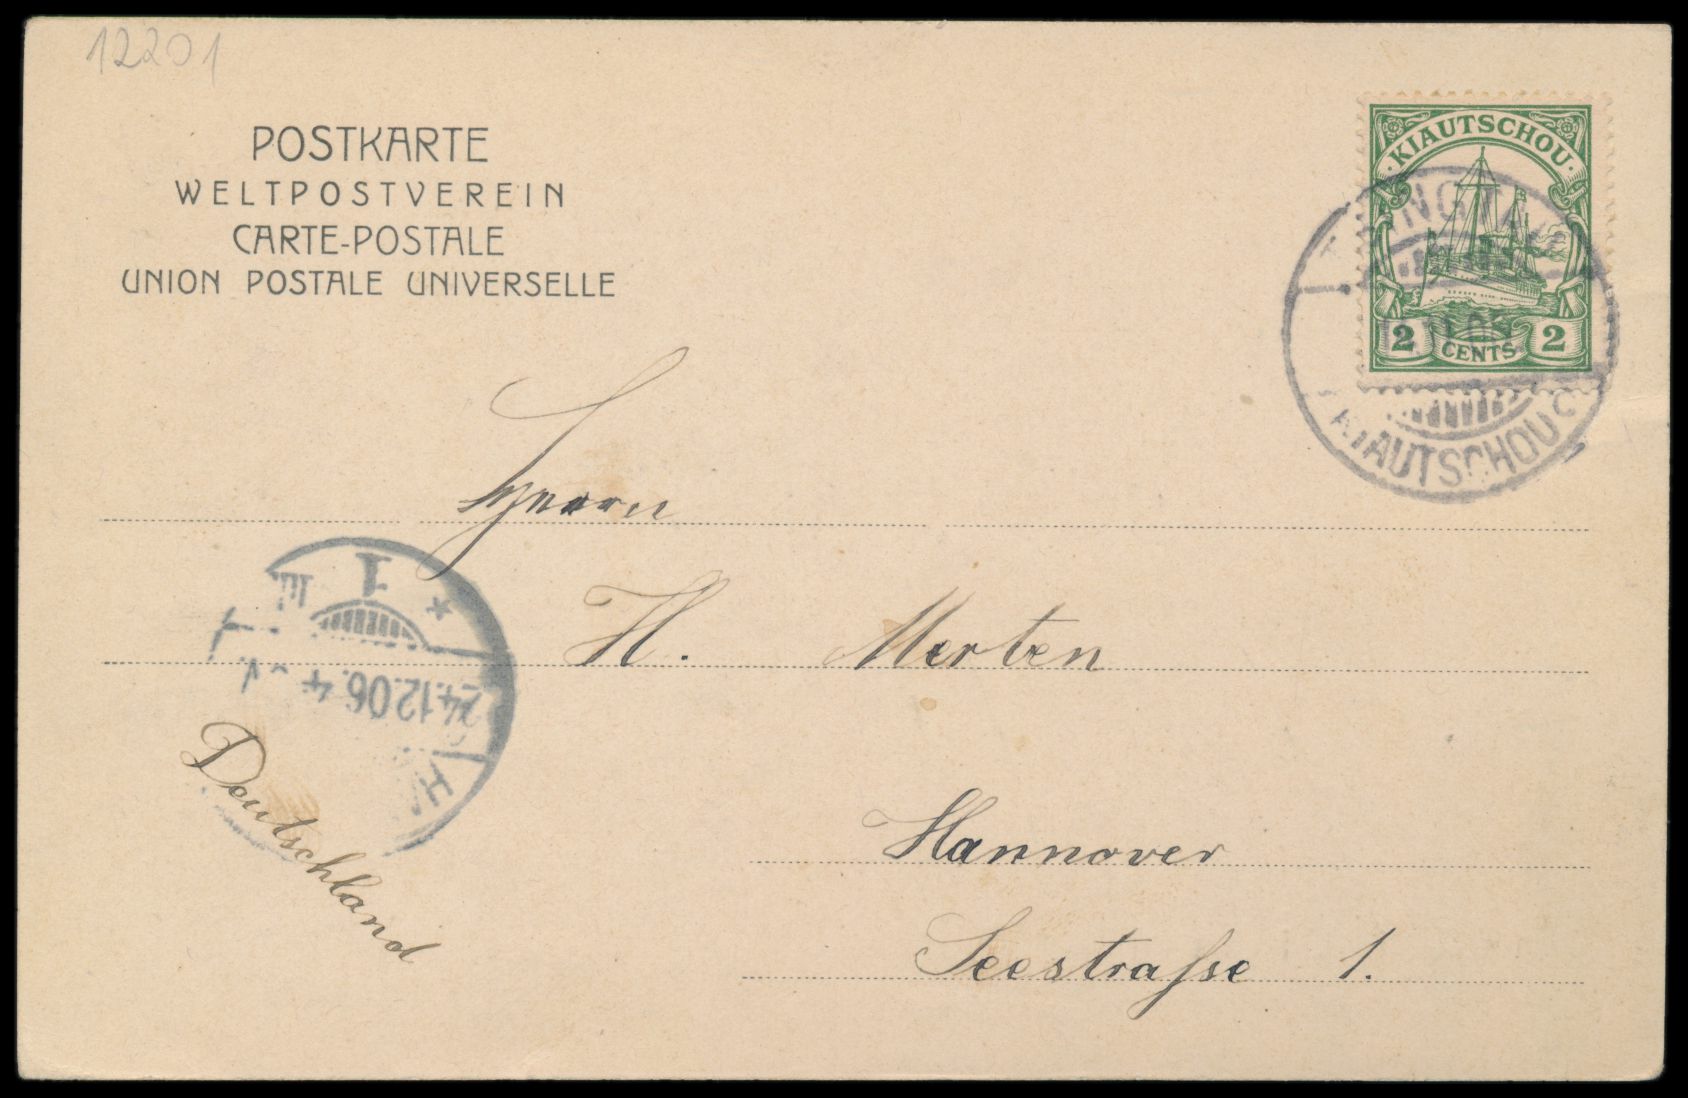 12201
POSTKARTE
WELTPOSTVEREIN
CARTE-POSTALE
UNION POSTALE UNIVERSELLE
·KIAUTSCHOU·
2 CENTS 2
TSINGTAU
KIAUTSCHOU
Herrn
H. Merten
Hannover
Seestraſse 1.
Deutschland
1
24.12.06. 4
HA